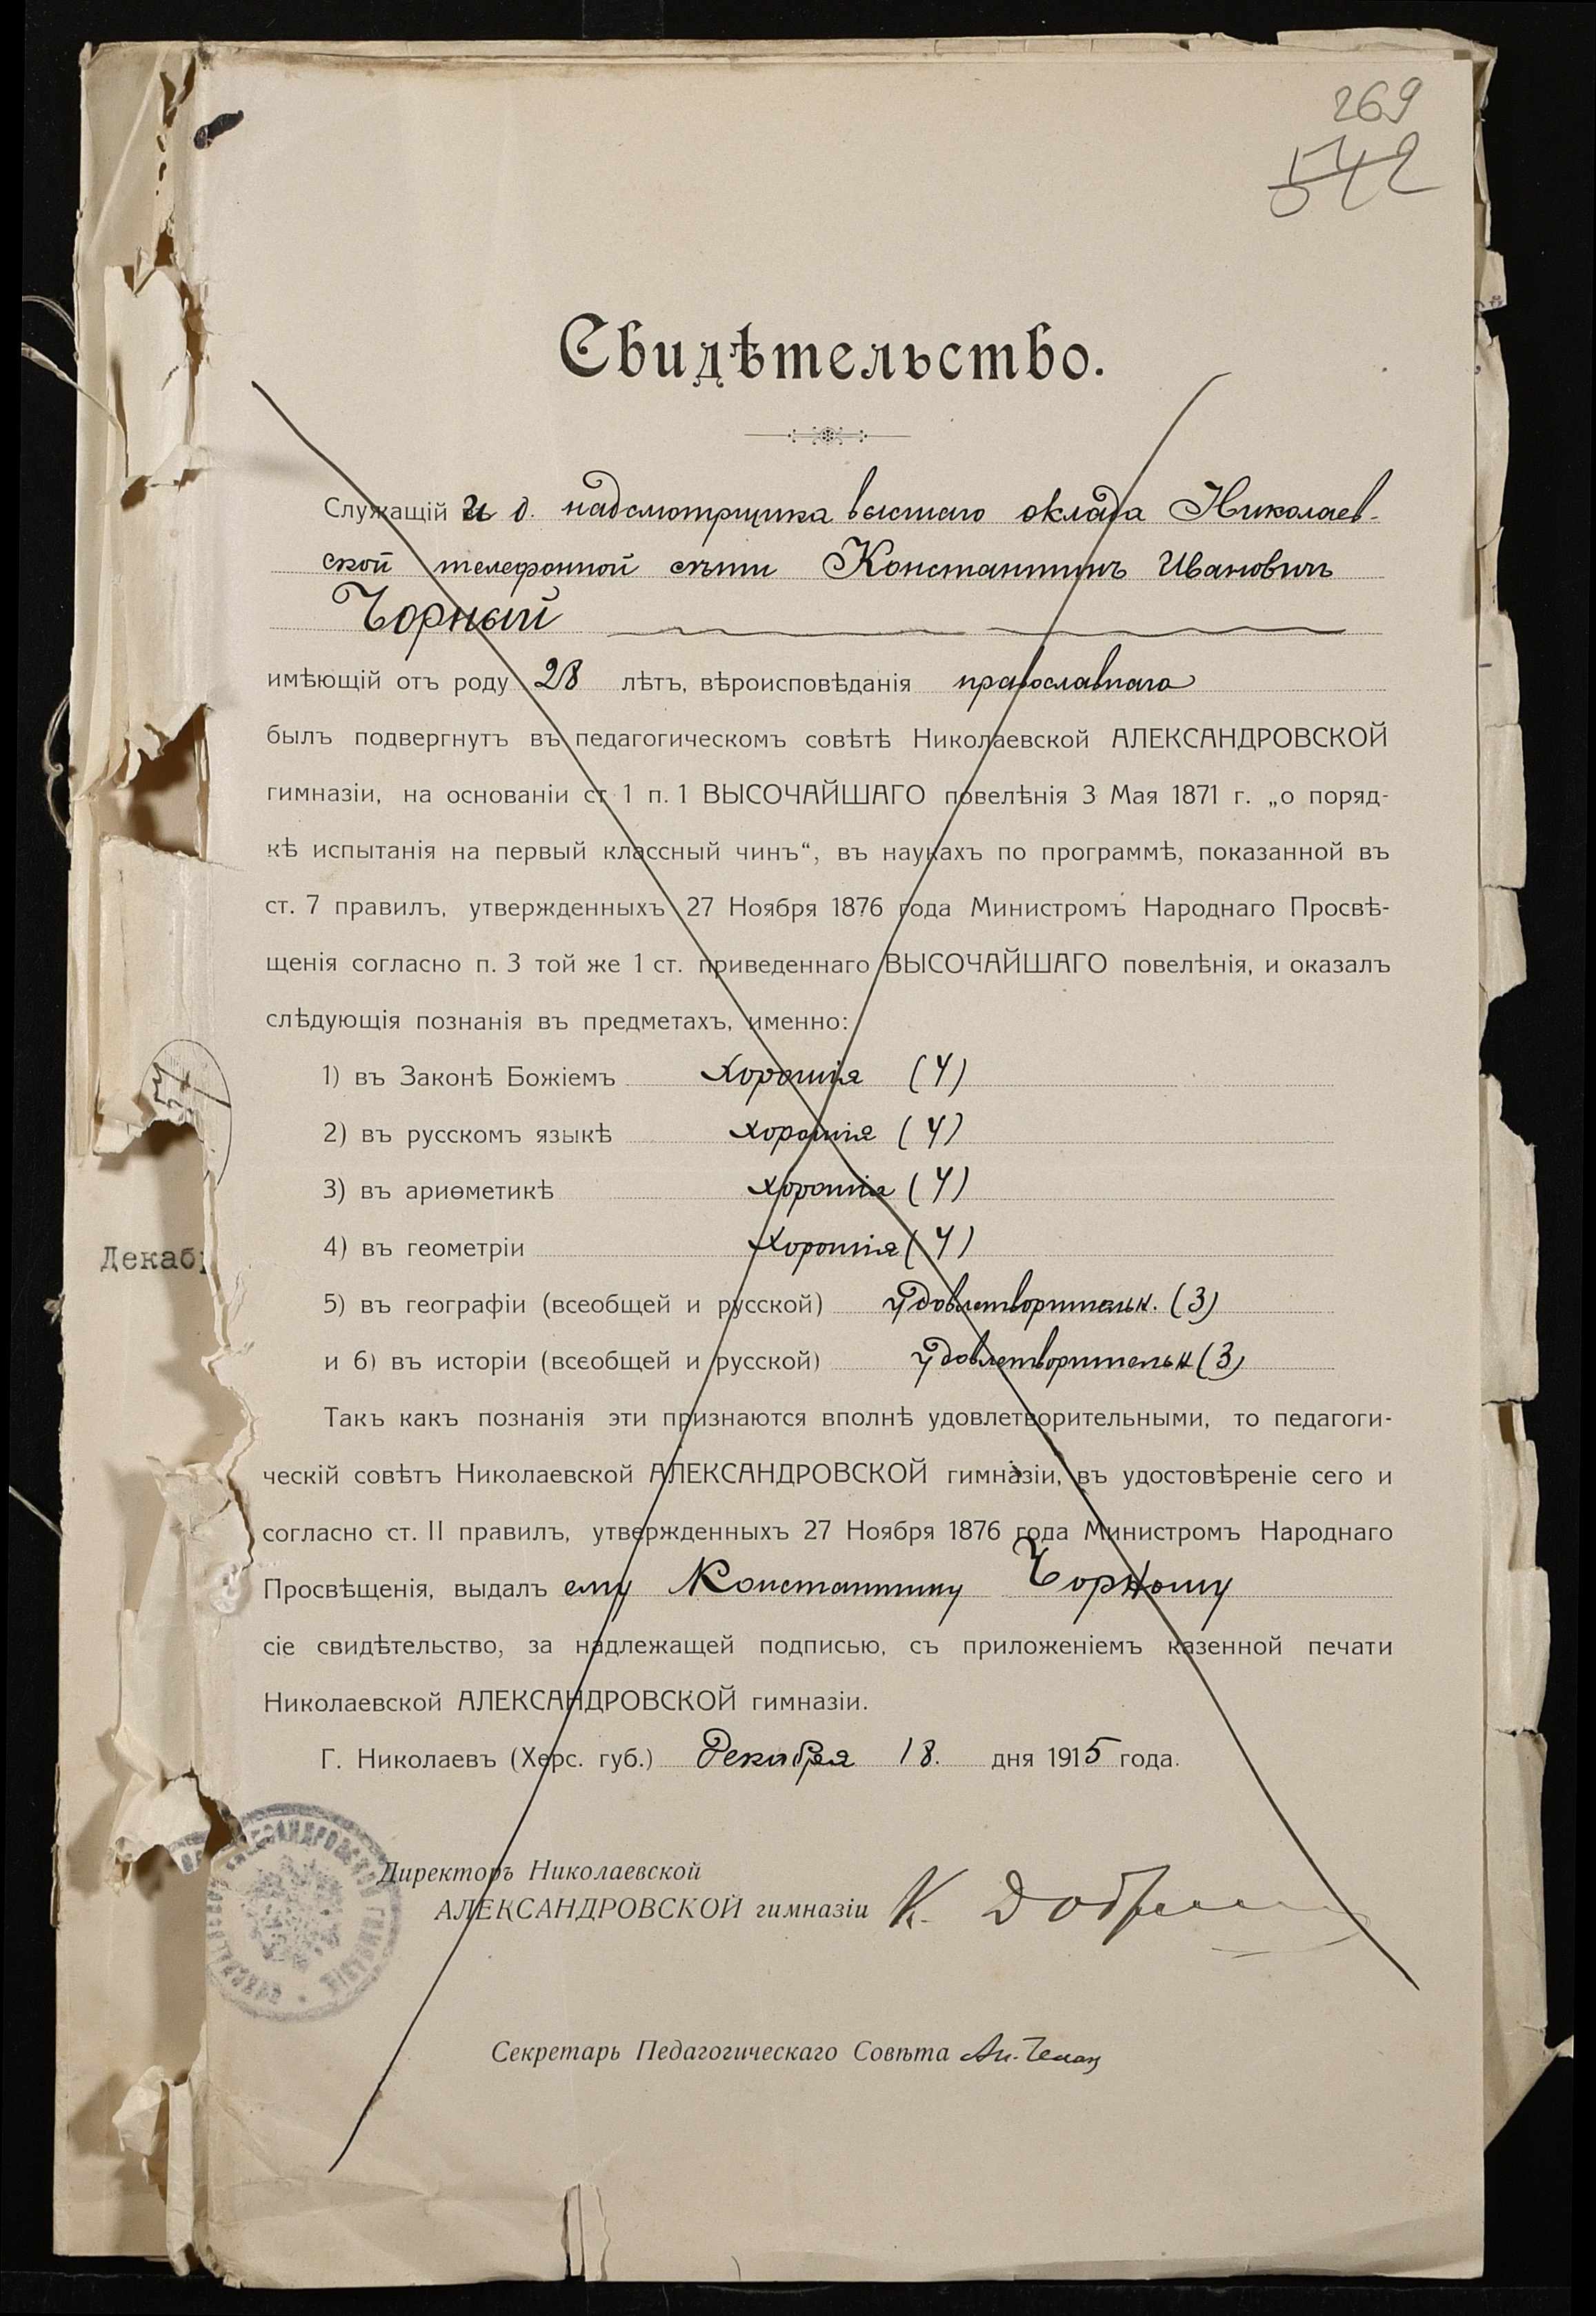 269
542
Свидѣтельство.
Служащій и д. надсмотрщика высшаго оклада Николаев-
ской телефонной сѣти Константинъ Ивановичъ
Чорный
имѣющій отъ роду 28 лѣтъ, вѣроисповѣданія православнаго
былъ подвергнутъ въ педагогическомъ совѣтѣ Николаевской АЛЕКСАНДРОВСКОЙ
гимназіи, на основаніи ст 1 п. 1 ВЫСОЧАЙШАГО повелѣнія 3 Мая 1871 г. „о поряд-
кѣ испытанія на первый классный чинъ“, въ наукахъ по программѣ, показанной въ
ст. 7 правилъ, утвержденныхъ 27 Ноября 1876 года Министромъ Народнаго Просвѣ-
щенія согласно п. 3 той же 1 ст. приведеннаго ВЫСОЧАЙШАГО повелѣнія, и оказалъ
слѣдующія познанія въ предметахъ, именно:
1) въ Законѣ Божіемъ Хорошія (4)
2) въ русскомъ языкѣ хорошія (4)
3) въ ариѳметикѣ хорошія (4)
4) въ геометріи Хорошія (4)
Декабр
5) въ географіи (всеобщей и русской) удовлетворительн. (3)
и 6) въ исторіи (всеобщей и русской) удовлетворительн (3)
Такъ какъ познанія эти признаются вполнѣ удовлетворительными, то педагоги-
ческій совѣтъ Николаевской АЛЕКСАНДРОВСКОЙ гимназіи, въ удостовѣреніе сего и
согласно ст. II правилъ, утвержденныхъ 27 Ноября 1876 года Министромъ Народнаго
Просвѣщенія, выдалъ ему Константину Чорному
сіе свидѣтельство, за надлежащей подписью, съ приложеніемъ казенной печати
Николаевской АЛЕКСАНДРОВСКОЙ гимназіи.
Г. Николаевъ (Херс. губ.) Декабря 18. дня 1915 года.
Директоръ Николаевской
АЛЕКСАНДРОВСКОЙ гимназіи К.
Секретарь Педагогическаго Совѣта